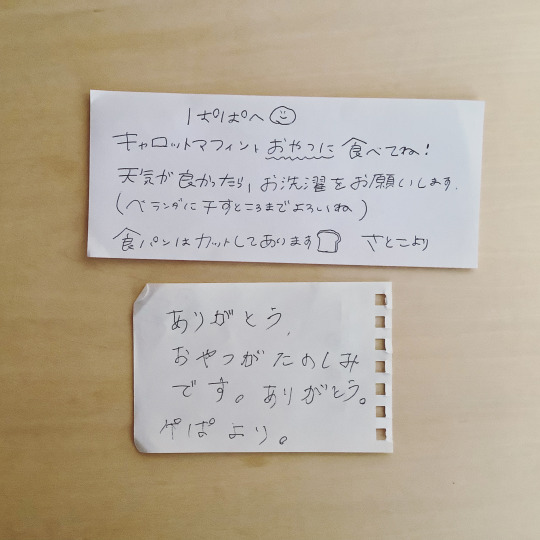 ぱぱへ
キャロットマフィント おやつに 食べてね!
天気が良かったら, お洗濯をお願いします.
(ベランダに干すところまでよろしいね)
食パンはカットしてあります さとこより
ありがとう.
おやつがたのしみ
です。ありがとう。
ぱぱより。